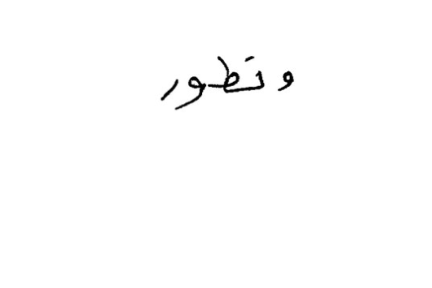 وتطور